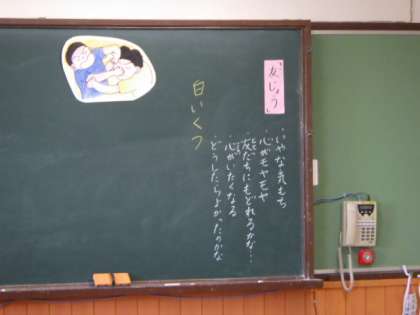 「友じょう」
・いやな気もち
・心がモヤモヤ
・友だちにもどれるかな…
・心がいたくなる
・どうしたらよかったのかな
白いくつ